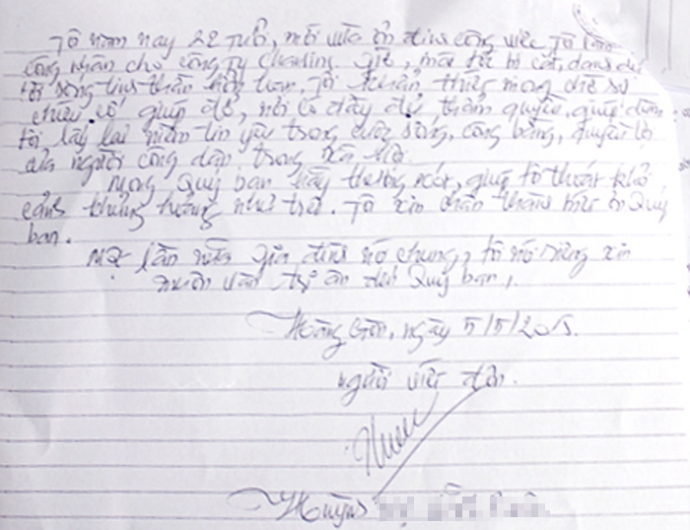 Tôi năm nay 22 tuổi, mới vừa ổn định công việc. Tôi làm
công nhân cho công ty Cheasing. Giờ, mất tất bị cắt,
tôi sống tinh thần hỗn loạn. Tôi khẩn thiết mong chờ sự
giúp đỡ, nơi có đầy đủ thẩm quyền, giúp dùm
tôi lấy lại niềm tin yêu trong cuộc sống, công bằng, quyền lợi
của người công dân trong xã hội.
Mong Quý ban hãy thương xót, giúp tôi thoát khỏi
cảnh khủng hoảng như trên. Tôi xin chân thành biết ơn Quý
ban.
Một lần nữa gia đình nói chung, tôi nói riêng xin
muôn vàn tri ân đến Quý ban,
ngày 5/5/2015.
Người viết đơn.
Huỳnh